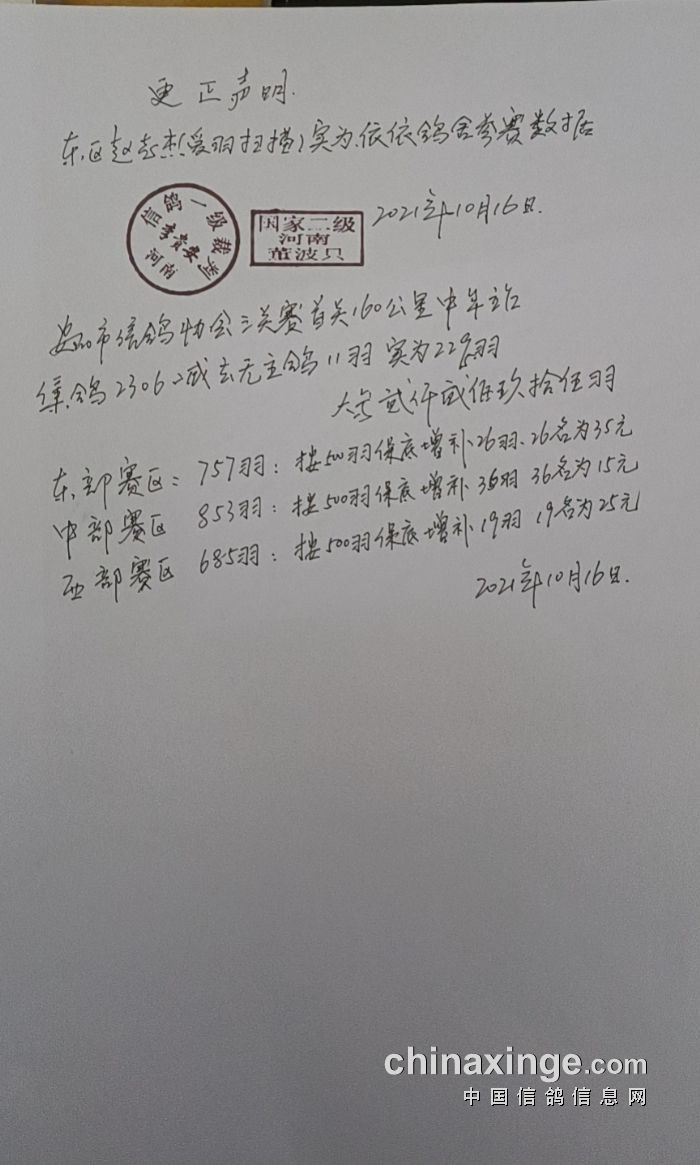 更正声明.
东区赵志杰(爱羽扫描)实为依依鸽舍参赛数据
信鸽一级裁判
李贵安
河南
国家二级
河南
董波只
2021年10月16日.
市信鸽协会三关赛首关160公里中牟站
集鸽2306减去无主鸽11羽 实为2295羽
大写 贰仟贰佰玖拾伍羽
东部赛区: 757羽: 按500羽保底增补26羽. 26名为35元
中部赛区 853羽: 按500羽保底增补36羽 36名为15元
西部赛区 685羽: 按500羽保底增补19羽 19名为25元
2021年10月16日.
chinaxinge.com
中国信鸽信息网